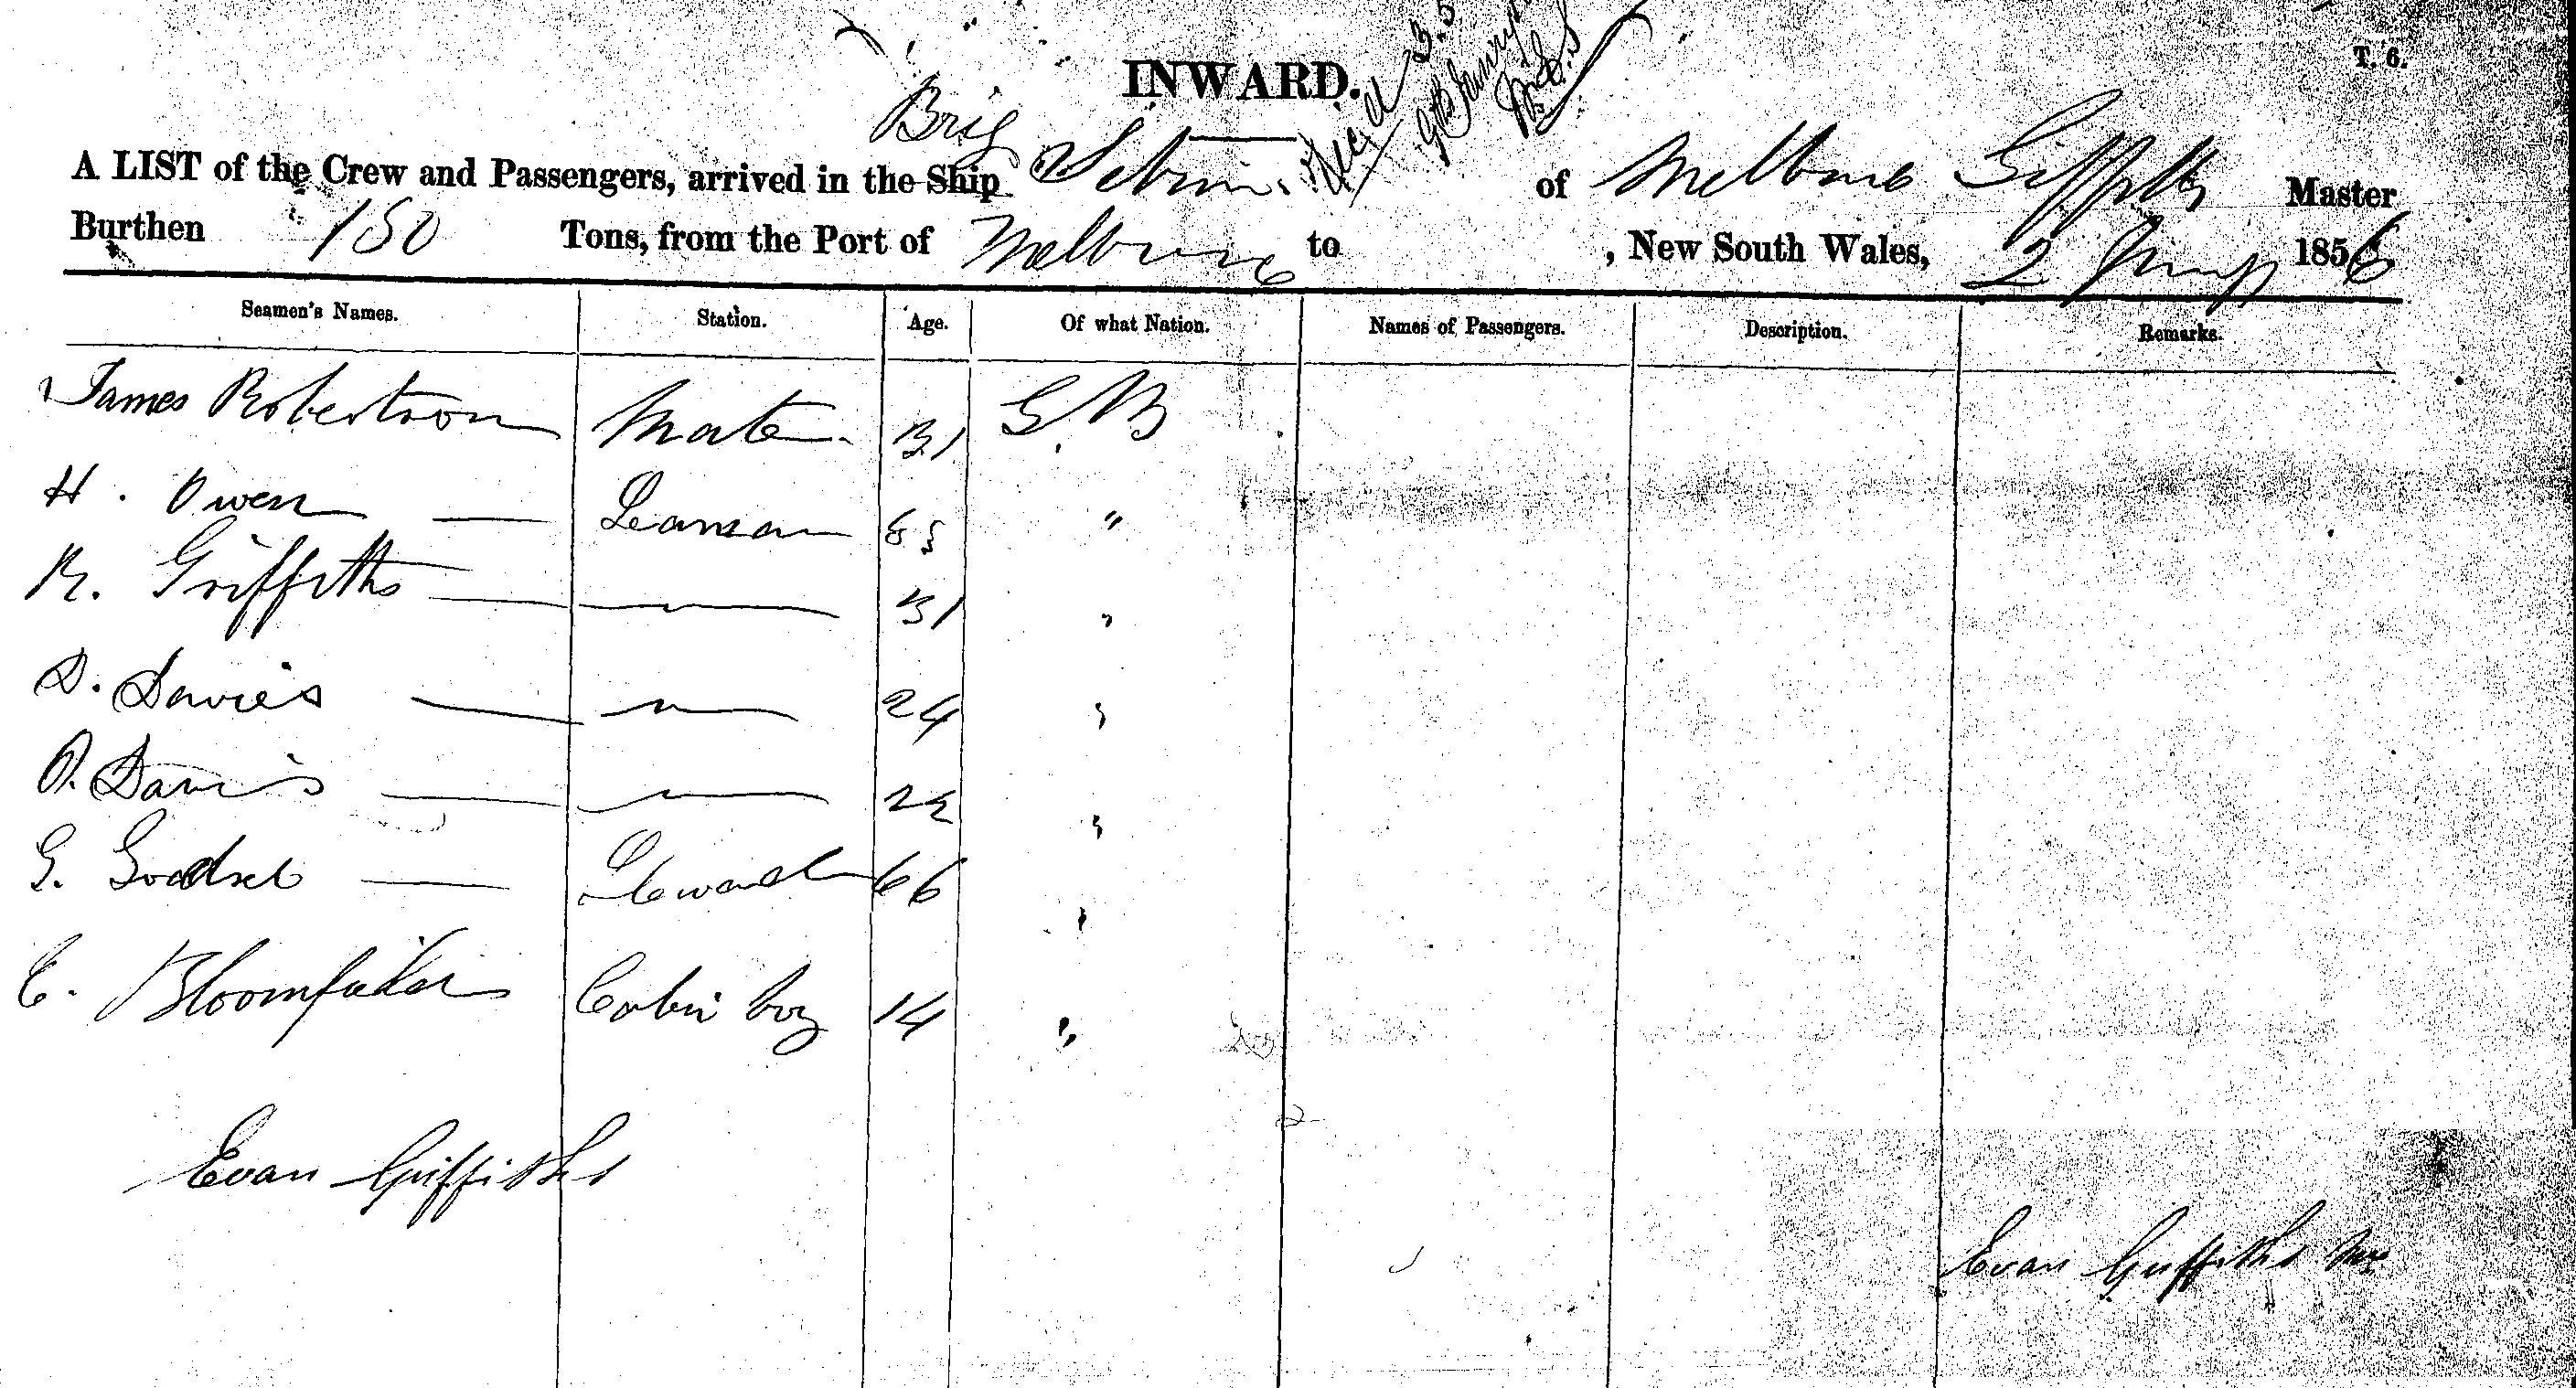 T. 6.
INWARD.
Brig
A LIST of the Crew and Passengers, arrived in the Ship of Melbourne Griffiths Master
Burthen 150 Tons, from the Port of Melbourne to , New South Wales, 2 1856
Seamen's Names. Station. Age. Of what Nation. Names of Passengers. Description. Remarks.
James Robertson Mate 31 G. B
H. Owen — Seaman "
R. Griffiths — — 31 "
D. Davies — — 24 "
Davis — — "
G. — Steward 66 "
C. Cabin boy 14 "
Evan Griffiths
Evan Griffiths